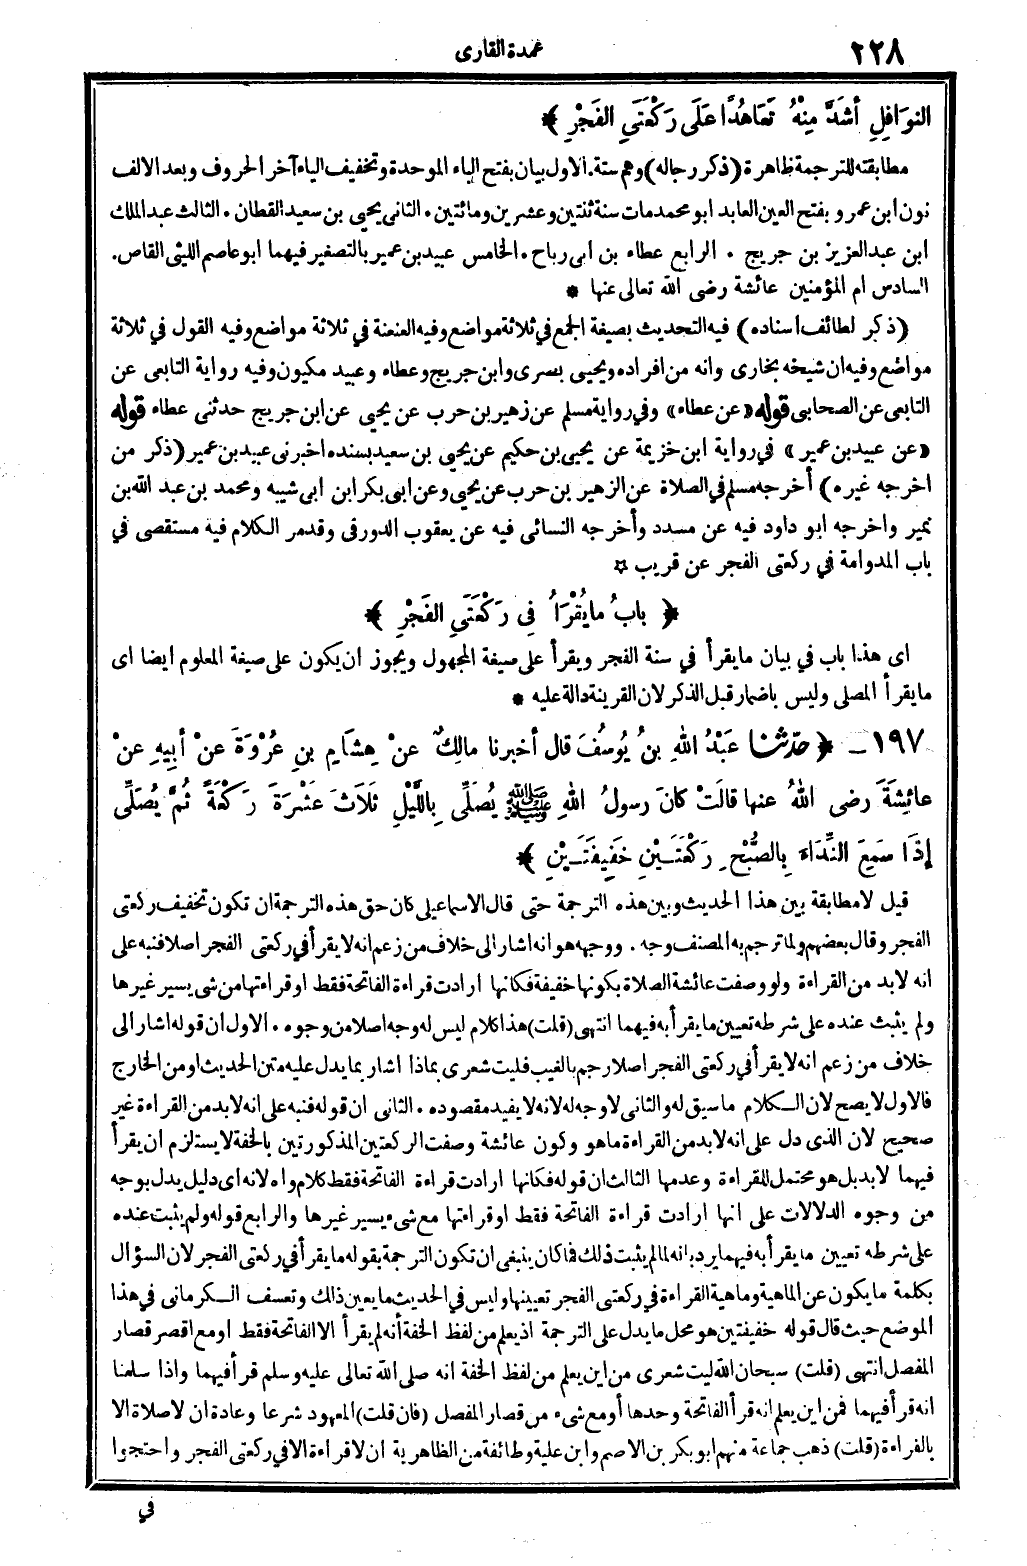 ٢٢٨
عمدة القارى
النوَافِلِ أشَدَّ مِنْهُ تَعَاهُدًا عَلَى رَكْعَتَىِ الفَجْرِ ﴾
مطابقته للترجمة ظاهرة (ذكر رجاله) وهم ستة. الاول بيان بفتح الباء الموحدة وتخفيف الياء آخر الحروف وبعد الالف
نون ابن عمرو بفتح العين العابد ابو محمد مات سنة ثنتين وعشرين ومائتين. الثانى يحيى بن سعيد القطان. الثالث عبد الملك
ابن عبد العزيز بن جريج. الرابع عطاء بن ابى رباح. الخامس عبيد بن عمير بالتصغير فيهما ابو عاصم الليثى القاص.
السادس ام المؤمنين عائشة رضى الله تعالى عنها *
(ذكر لطائف اسناده) فيه التحديث بصيغة الجمع في ثلاثة مواضع وفيه العنعنة في ثلاثة مواضع وفيه القول في ثلاثة
مواضع وفيه ان شيخه بخارى وانه من افراده ويحيى بصرى وابن جريج وعطاء وعبيد مكيون وفيه رواية التابعى عن
التابعى عن الصحابى قوله «عن عطاء» وفي رواية مسلم عن زهير بن حرب عن يحيى عن ابن جريج حدثنى عطاء قوله
«عن عبيد بن عمير» في رواية ابن خزيمة عن يحيى بن حكيم عن يحيى بن سعيد بسنده اخبرنى عبيد بن عمير (ذكر من
اخرجه غيره) أخرجه مسلم في الصلاة عن الزهير بن حرب عن يحيى وعن ابى بكر ابن ابى شيبه ومحمد بن عبد الله بن
نمير واخرجه ابو داود فيه عن مسدد وأخرجه النسائى فيه عن يعقوب الدورقى وقدمر الكلام فيه مستقصى في
باب المدوامة في ركعتى الفجر عن قريب *
﴿ بابُ ما يُقْرَأُ فِى رَكْعَتَىِ الفَجْرِ ﴾
اى هذا باب في بيان ما يقرأ في سنة الفجر ويقرأ على صيغة المجهول ويجوز ان يكون على صيغة المعلوم ايضا اى
ما يقرأ المصلى وليس باضمار قبل الذكر لان القرينة دالة عليه *
١٩٧ــ ﴿ حدّثنا عَبْدُ اللهِ بنُ يُوسُفَ قال أخبرنا مالِكٌ عنْ هِشَامِ بنِ عُرْوَةَ عنْ أبِيهِ عنْ
عائِشَةَ رضى اللهُ عنها قالَتْ كانَ رسولُ اللهِ ﷺ يُصَلِّى بِاللَّيْلِ ثَلَاثَ عَشْرَةَ رَكْعَةً ثُمَّ يُصَلِّى
إذَا سَمِعَ النِّدَاءَ بِالصُّبْحِ رَكْعَتَيْنِ خَفِيفَتَيْنِ ﴾
قيل لا مطابقة بين هذا الحديث وبين هذه الترجمة حتى قال الاسماعيلى كان حق هذه الترجمة ان تكون تخفيف ركعتى
الفجر وقال بعضهم ولما ترجم به المصنف وجه. ووجهه هو انه اشار الى خلاف من زعم انه لا يقرأ في ركعتى الفجر اصلا فنبه على
انه لا بد من القراءة ولو وصفت عائشة الصلاة بكونها خفيفة فكانها ارادت قراءة الفاتحة فقط او قراءتها مع شى يسير غيرها
ولم يثبث عنده على شرطه تعيين ما يقرأ به فيهما انتهى (قلت) هذا كلام ليس له وجه اصلا من وجوه. الاول ان قوله اشار الى
خلاف من زعم انه لا يقرأ في ركعتى الفجر اصلا رجم بالغيب فليت شعرى بماذا اشار بما يدل عليه متن الحديث او من الخارج
فالاول لا يصح لان الكلام ما سيق له والثانى لا وجه له لانه لا يفيد مقصوده. الثانى ان قوله فنبه على انه لا بد من القراءة غير
صحيح لان الذى دل على انه لا بد من القراءة ما هو وكون عائشة وصفت الركعتين المذكورتين بالخفة لا يستلزم ان يقرأ
فيهما لا بد بل هو محتمل للقراءة وعدمها الثالث ان قوله فكانها ارادت قراءة الفاتحة فقط كلام واه لانه اى دليل يدل بوجه
من وجوه الدلالات على انها ارادت قراءة الفاتحة فقط او قراءتها مع شىء يسير غيرها والرابع قوله ولم يثبت عنده
على شرطه تعيين ما يقرأ به فيهما يرد بانه لما لم يثبت ذلك فما كان ينبغى ان تكون الترجمة بقوله ما يقرأ في ركعتى الفجر لان السؤال
بكلمة ما يكون عن الماهية وماهية القراءة في ركعتى الفجر تعيينها وليس في الحديث ما يعين ذلك وتعسف الكرمانى في هذا
الموضع حيث قال قوله خفيفتين هو محل ما يدل على الترجمة اذ يعلم من لفظ الخفة أنه لم يقرأ الا الفاتحة فقط او مع اقصر قصار
المفصل انتهى (قلت) سبحان الله ليت شعرى من اين يعلم من لفظ الخفة انه صلى الله تعالى عليه وسلم قرأ فيهما واذا سلمنا
انه قرأ فيهما فمن اين يعلم انه قرأ الفاتحة وحدها أو مع شىء من قصار المفصل (فان قلت) المعهود شرعا وعادة ان لا صلاة الا
بالقراءة (قلت) ذهب جماعة منهم ابو بكر بن الاصم وابن علية وطائفة من الظاهرية ان لا قراءة الا في ركعتى الفجر واحتجوا
في